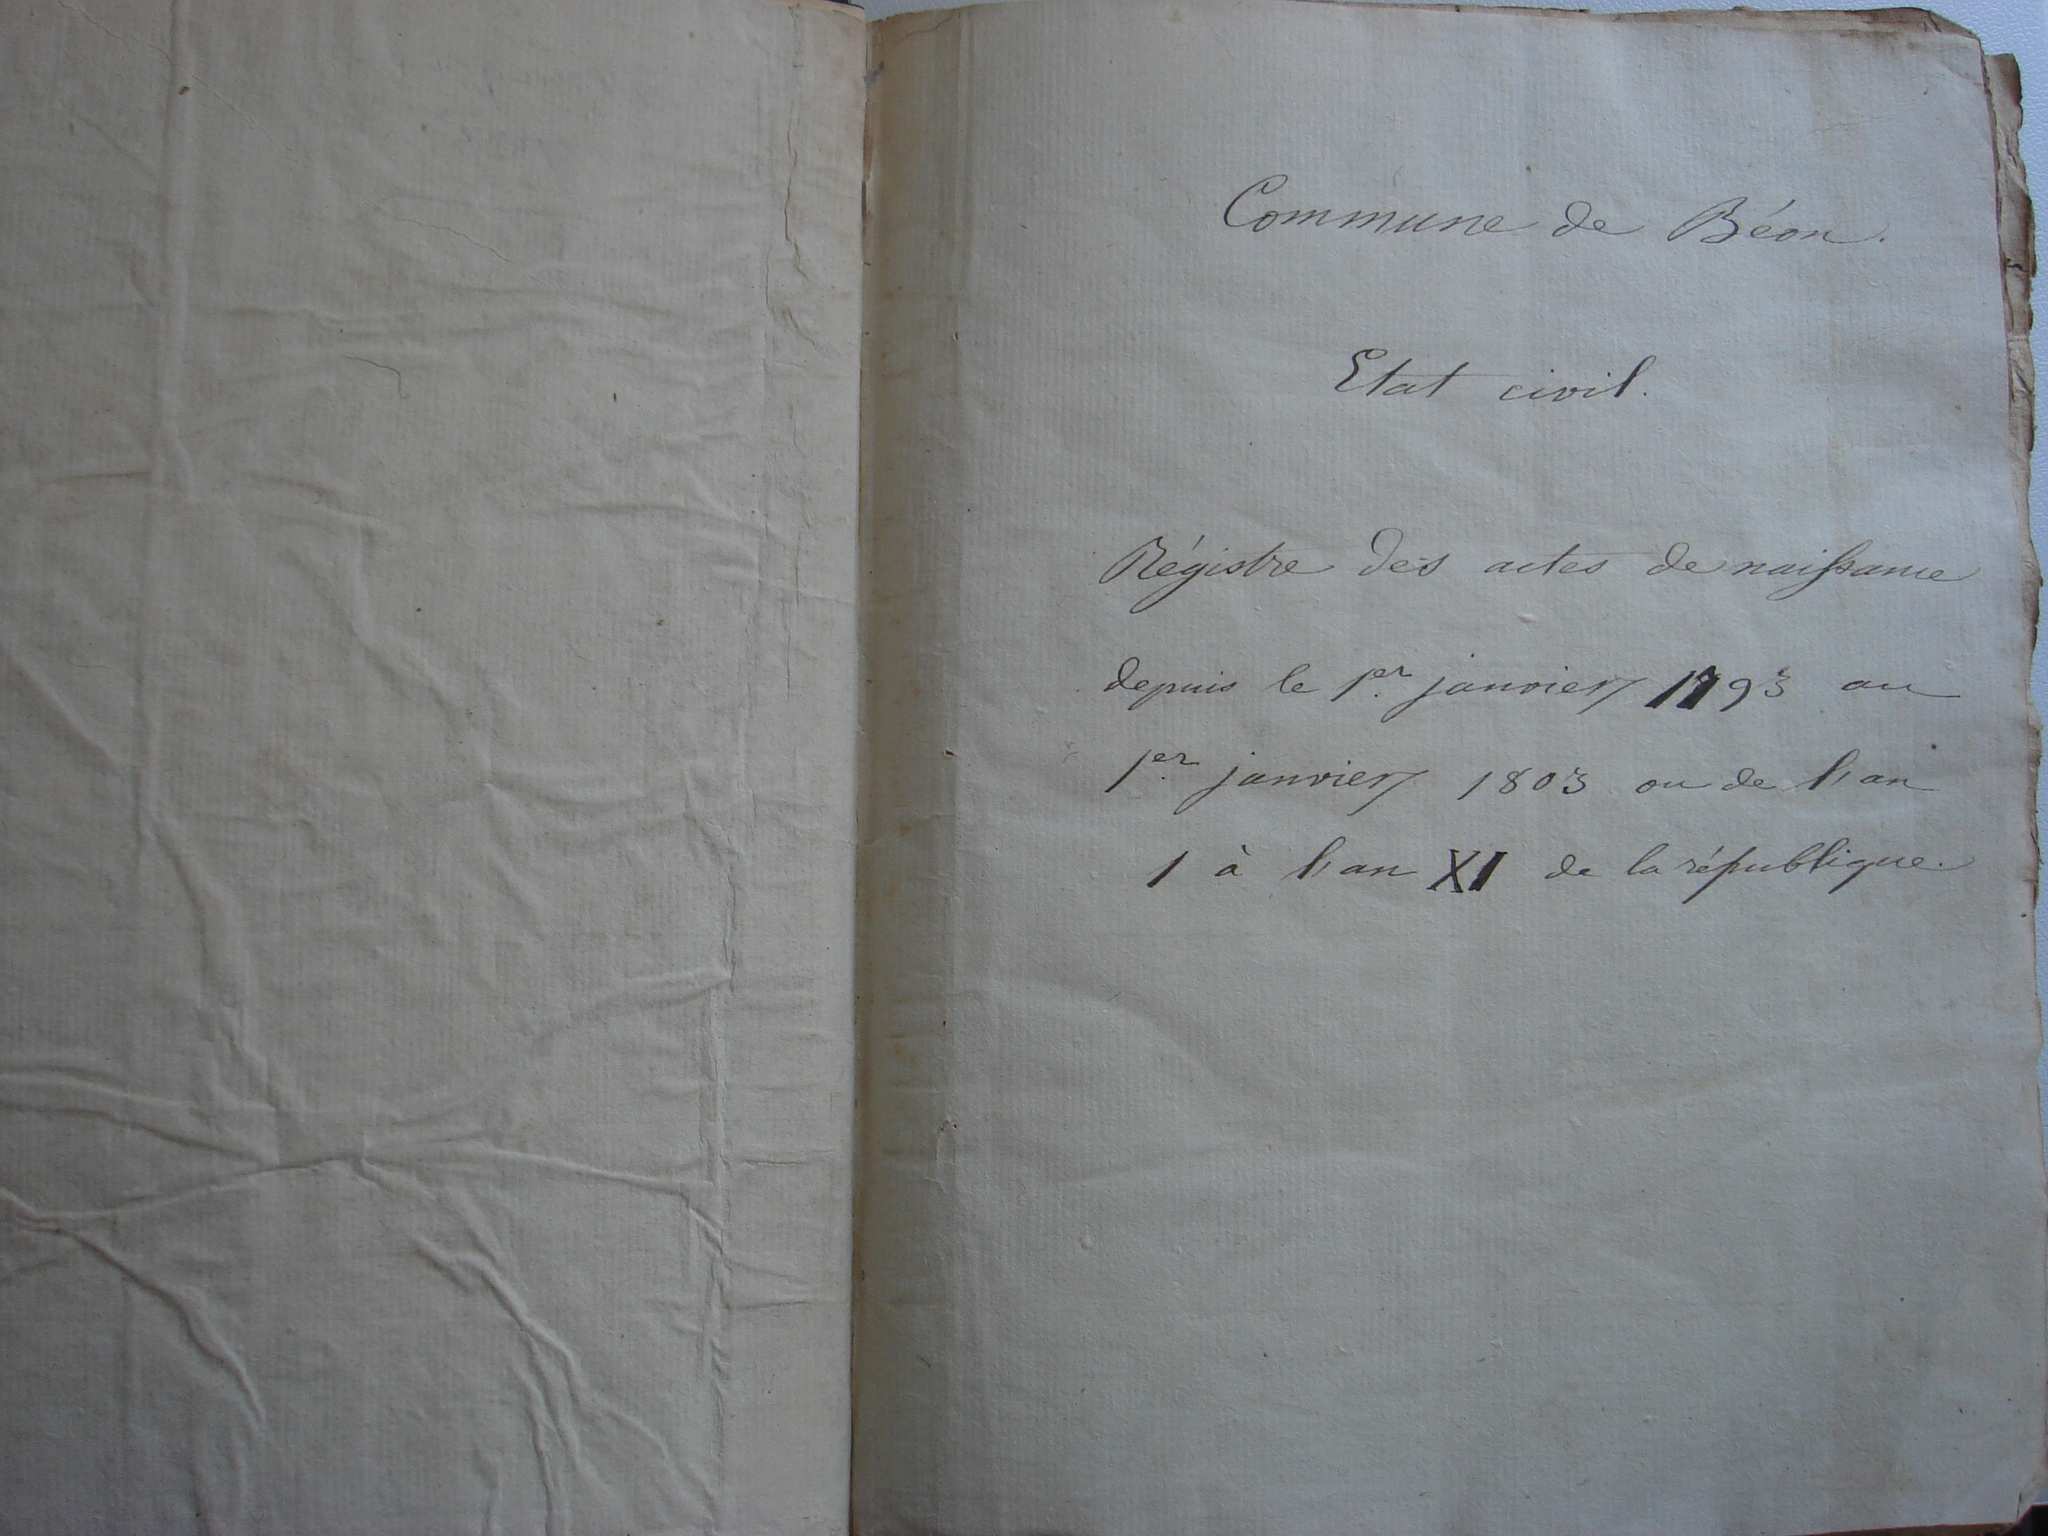 Commune de Béon.
Etat civil.
Régistre des actes de naissance
depuis le 1er janvier 1793 au
1er janvier 1803 ou de l'an
1 à l'an XI de la république.